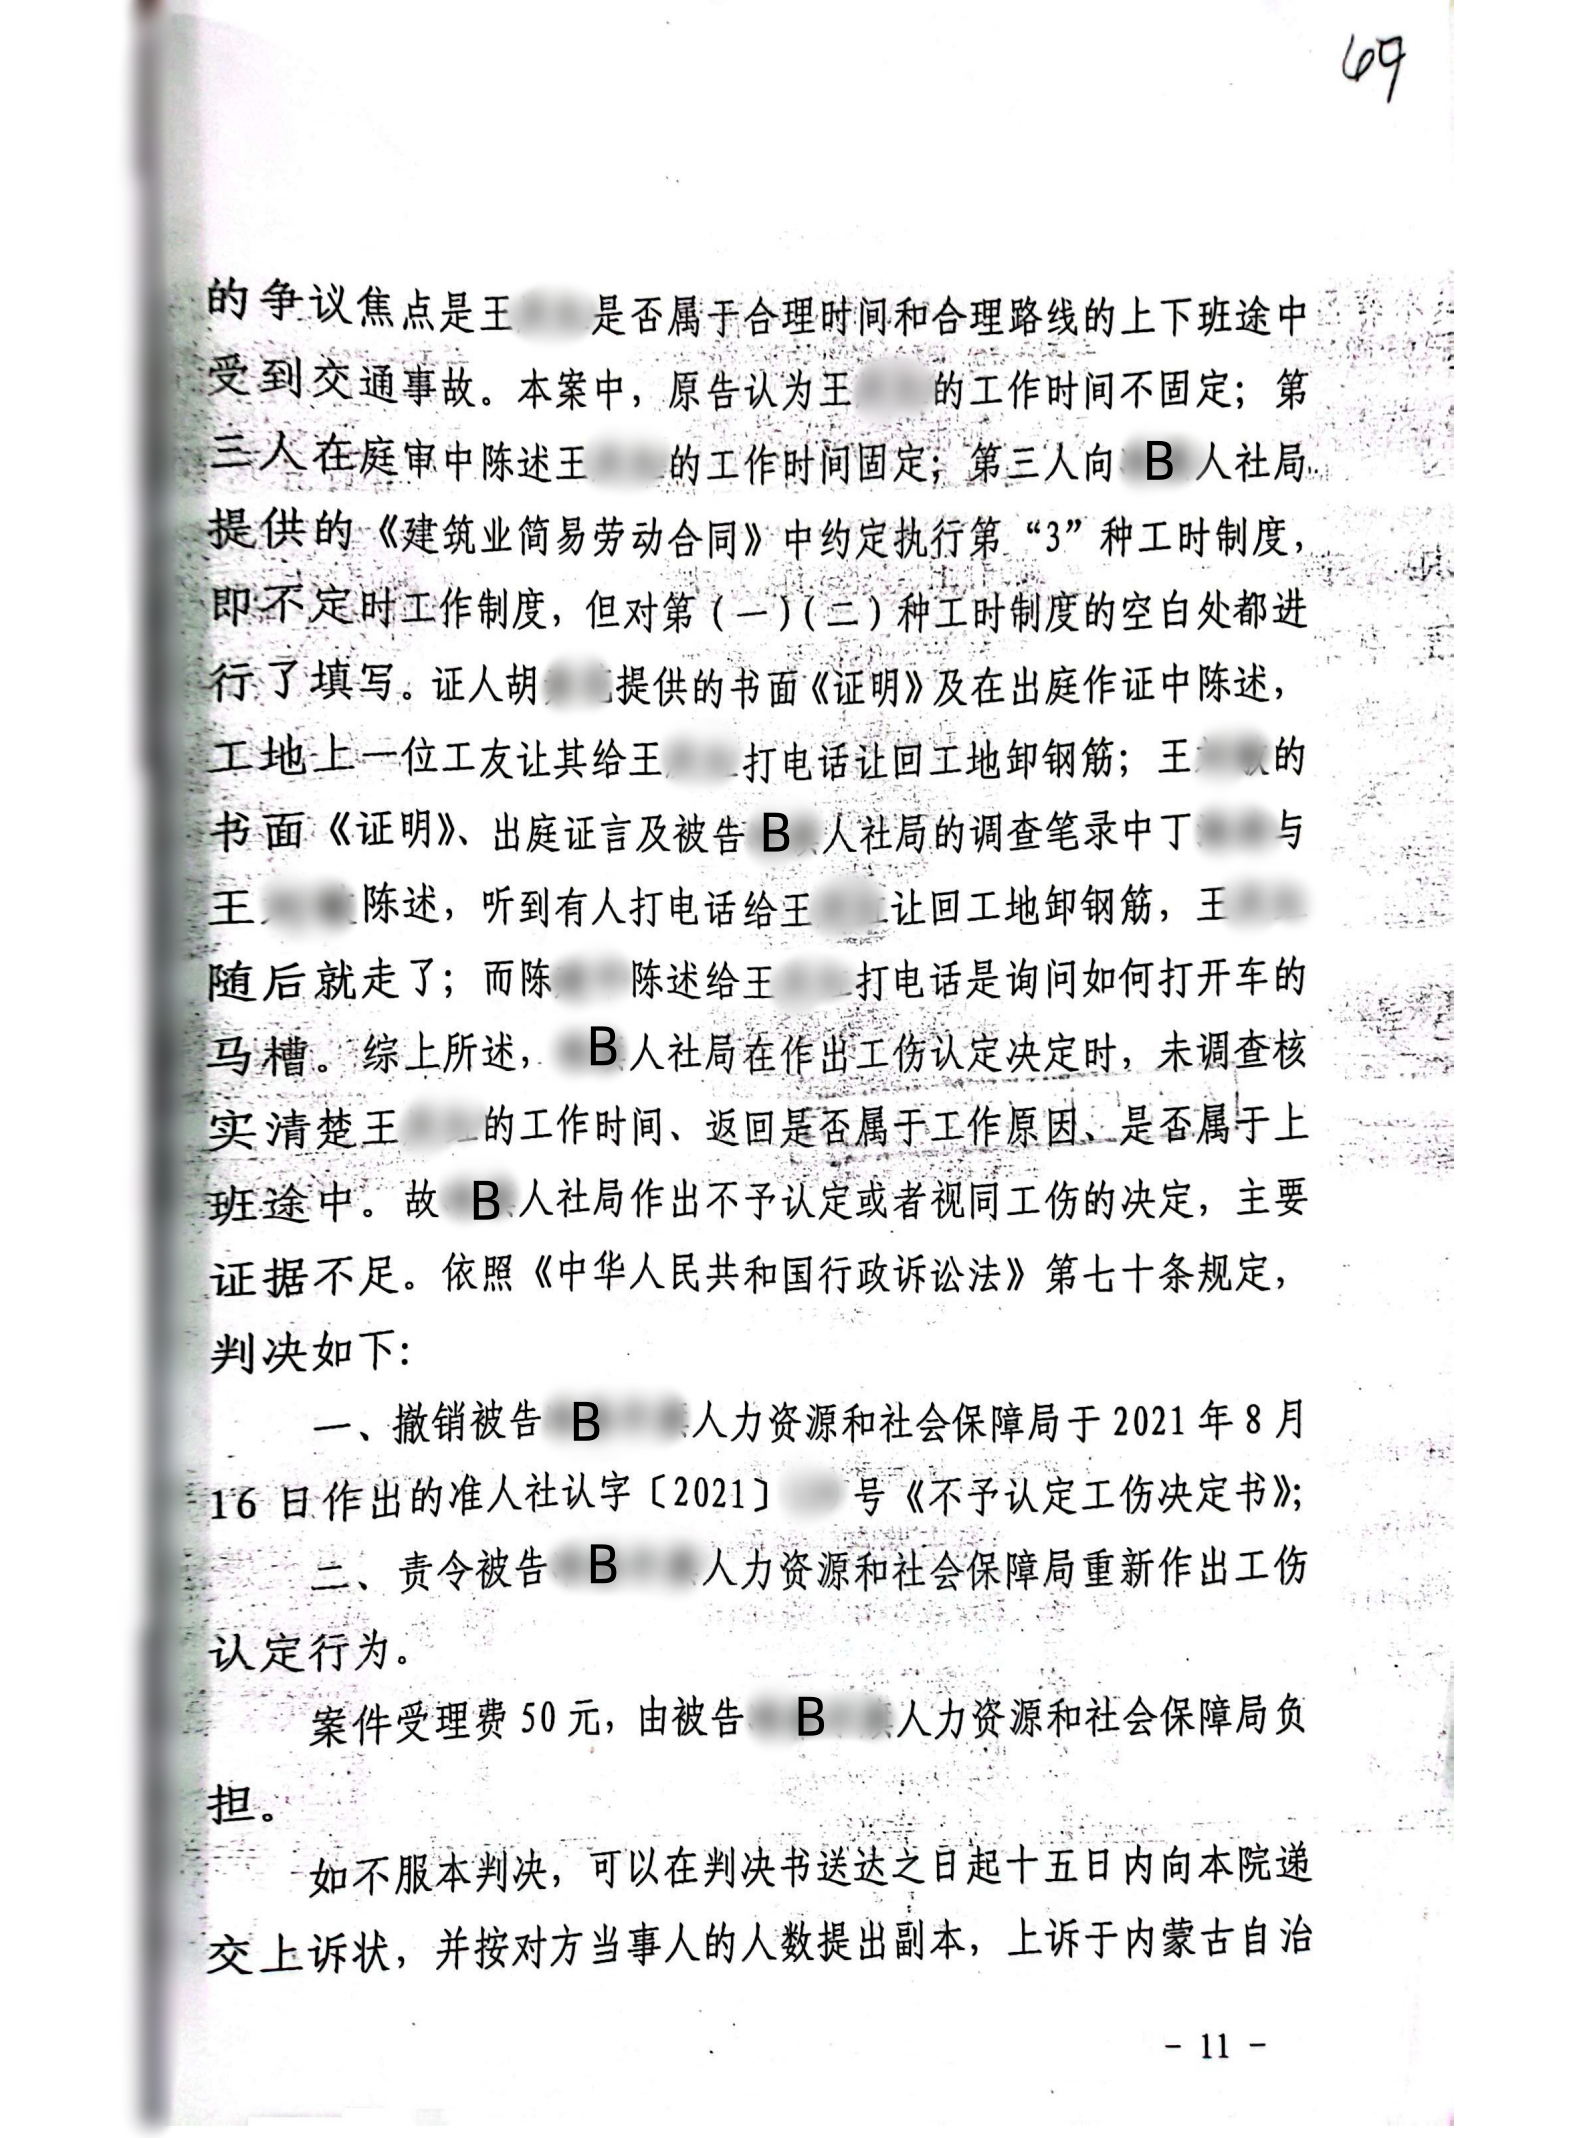 69
的争议焦点是王 是否属于合理时间和合理路线的上下班途中
受到交通事故。本案中，原告认为王 的工作时间不固定；第
三人在庭审中陈述王 的工作时间固定；第三人向 B 人社局
提供的《建筑业简易劳动合同》中约定执行第“3”种工时制度，
即不定时工作制度，但对第（一）（二）种工时制度的空白处都进
行了填写。证人胡 提供的书面《证明》及在出庭作证中陈述，
工地上一位工友让其给王 打电话让回工地卸钢筋；王 的
书面《证明》、出庭证言及被告 B 人社局的调查笔录中丁 与
王 陈述，听到有人打电话给王 让回工地卸钢筋，王
随后就走了；而陈 陈述给王 打电话是询问如何打开车的
马槽。综上所述， B 人社局在作出工伤认定决定时，未调查核
实清楚王 的工作时间、返回是否属于工作原因、是否属于上
班途中。故 B 人社局作出不予认定或者视同工伤的决定，主要
证据不足。依照《中华人民共和国行政诉讼法》第七十条规定，
判决如下：
一、撤销被告 B 人力资源和社会保障局于 2021 年 8 月
16 日作出的准人社认字〔2021〕 号《不予认定工伤决定书》；
二、责令被告 B 人力资源和社会保障局重新作出工伤
认定行为。
案件受理费 50 元，由被告 B 人力资源和社会保障局负
担。
如不服本判决，可以在判决书送达之日起十五日内向本院递
交上诉状，并按对方当事人的人数提出副本，上诉于内蒙古自治
- 11 -